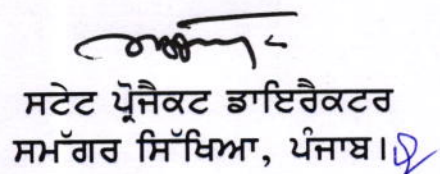 ਸਟੇਟ ਪ੍ਰੋਜੈਕਟ ਡਾਇਰੈਕਟਰ
ਸਮੱਗਰ ਸਿੱਖਿਆ, ਪੰਜਾਬ।